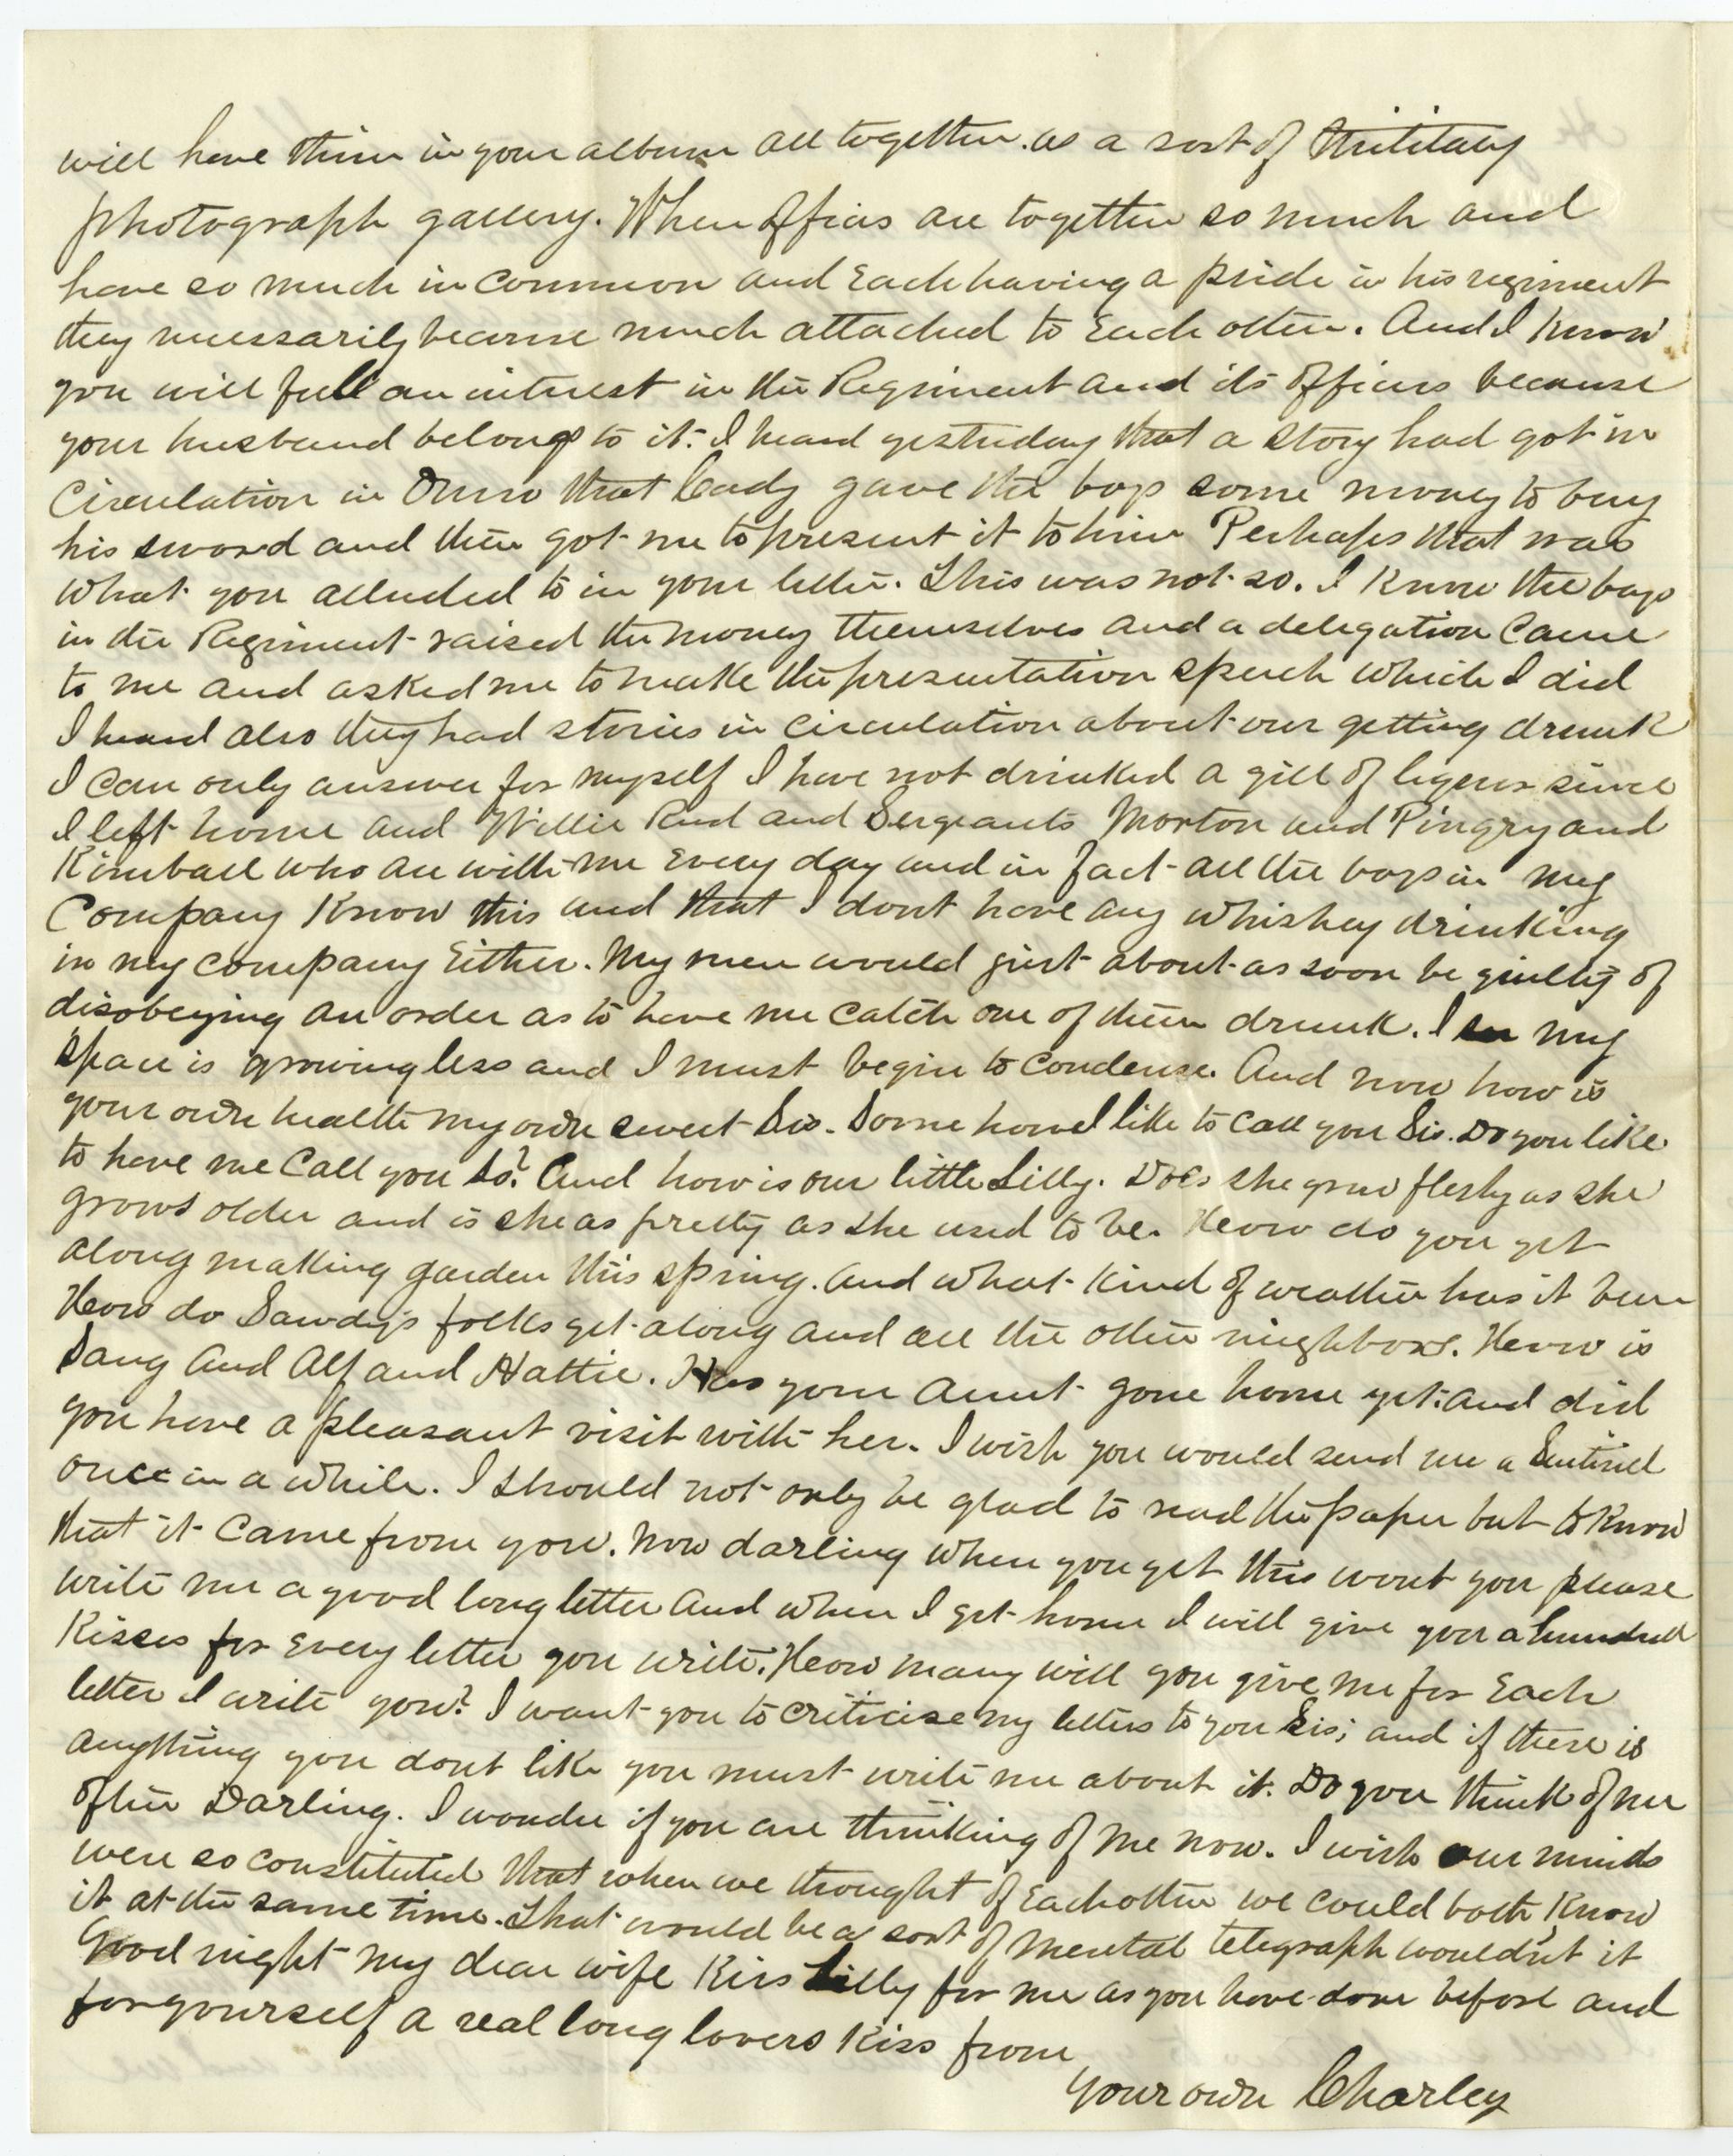 will have them in your album all together. as a sort of Military
photograph gallery. When officers are together so much and
have so much in common and Each having a pride in his regiment
they necessarily become much attached to Each other. And I Know
you will feel an interest in the Regiment and its officers because
your husband belongs to it. I heard yesterday that a story had got in
Circulation in Onro that Cady gave the boys some money to buy
his sword and then got me to present it to him Perhaps that was
what you alluded to in your letter. This was not so. I Know the boys
in the Regiment raised the money themselves and a delegation Came
to me and asked me to make the presentation speech which I did
I heard also they had stories in circulation about our getting drunk
I can only answer for myself I have not drinked a gill of liquor since
I left home and Willie Rud and Sergeants Morton and Pingry and
Kimball who are with me Every day and in fact all the boys in my
Company Know this and that I dont have any whiskey drinking
in my company Either. My men would just about as soon be guilty of
disobeying an order as to have me catch one of them drunk. I my
space is growing less and I must begin to condense. And now how is
your own health my own sweet Sis. Some how I like to call you Sis. Do you like
to have me Call you so? And how is our little Lilly. Does she grow fleshy as she
grows older and is she as pretty as she used to be. How do you get
along making garden this spring. And what kind of weather has it been
How do Sawdy's folks get along and all the other neighbors. How is
Sang And Alf and Hattie. Has your Aunt gone home yet. and did
you have a pleasant visit with her. I wish you would send me a Sentinel
once in a while. I should not only be glad to read the paper but to Know
that it Came from you. Now darling when you get this wont you please
write me a good long letter And when I get home I will give you a hundred
Kisses for Every letter you write. How many will you give me for Each
letter I write you? I want you to criticise my letters to you Sis; and if there is
anything you dont like you must write me about it. Do you think of me
often Darling. I wonder if you are thinking of me now. I wish our minds
were so constituted that when we thought of Each other we could both Know
it at the same time. That would be a sort of mental telegraph wouldn't it
Good night my dear wife Kiss Lilly for me as you have done before and
for yourself a real long lovers Kiss from
your own Charley